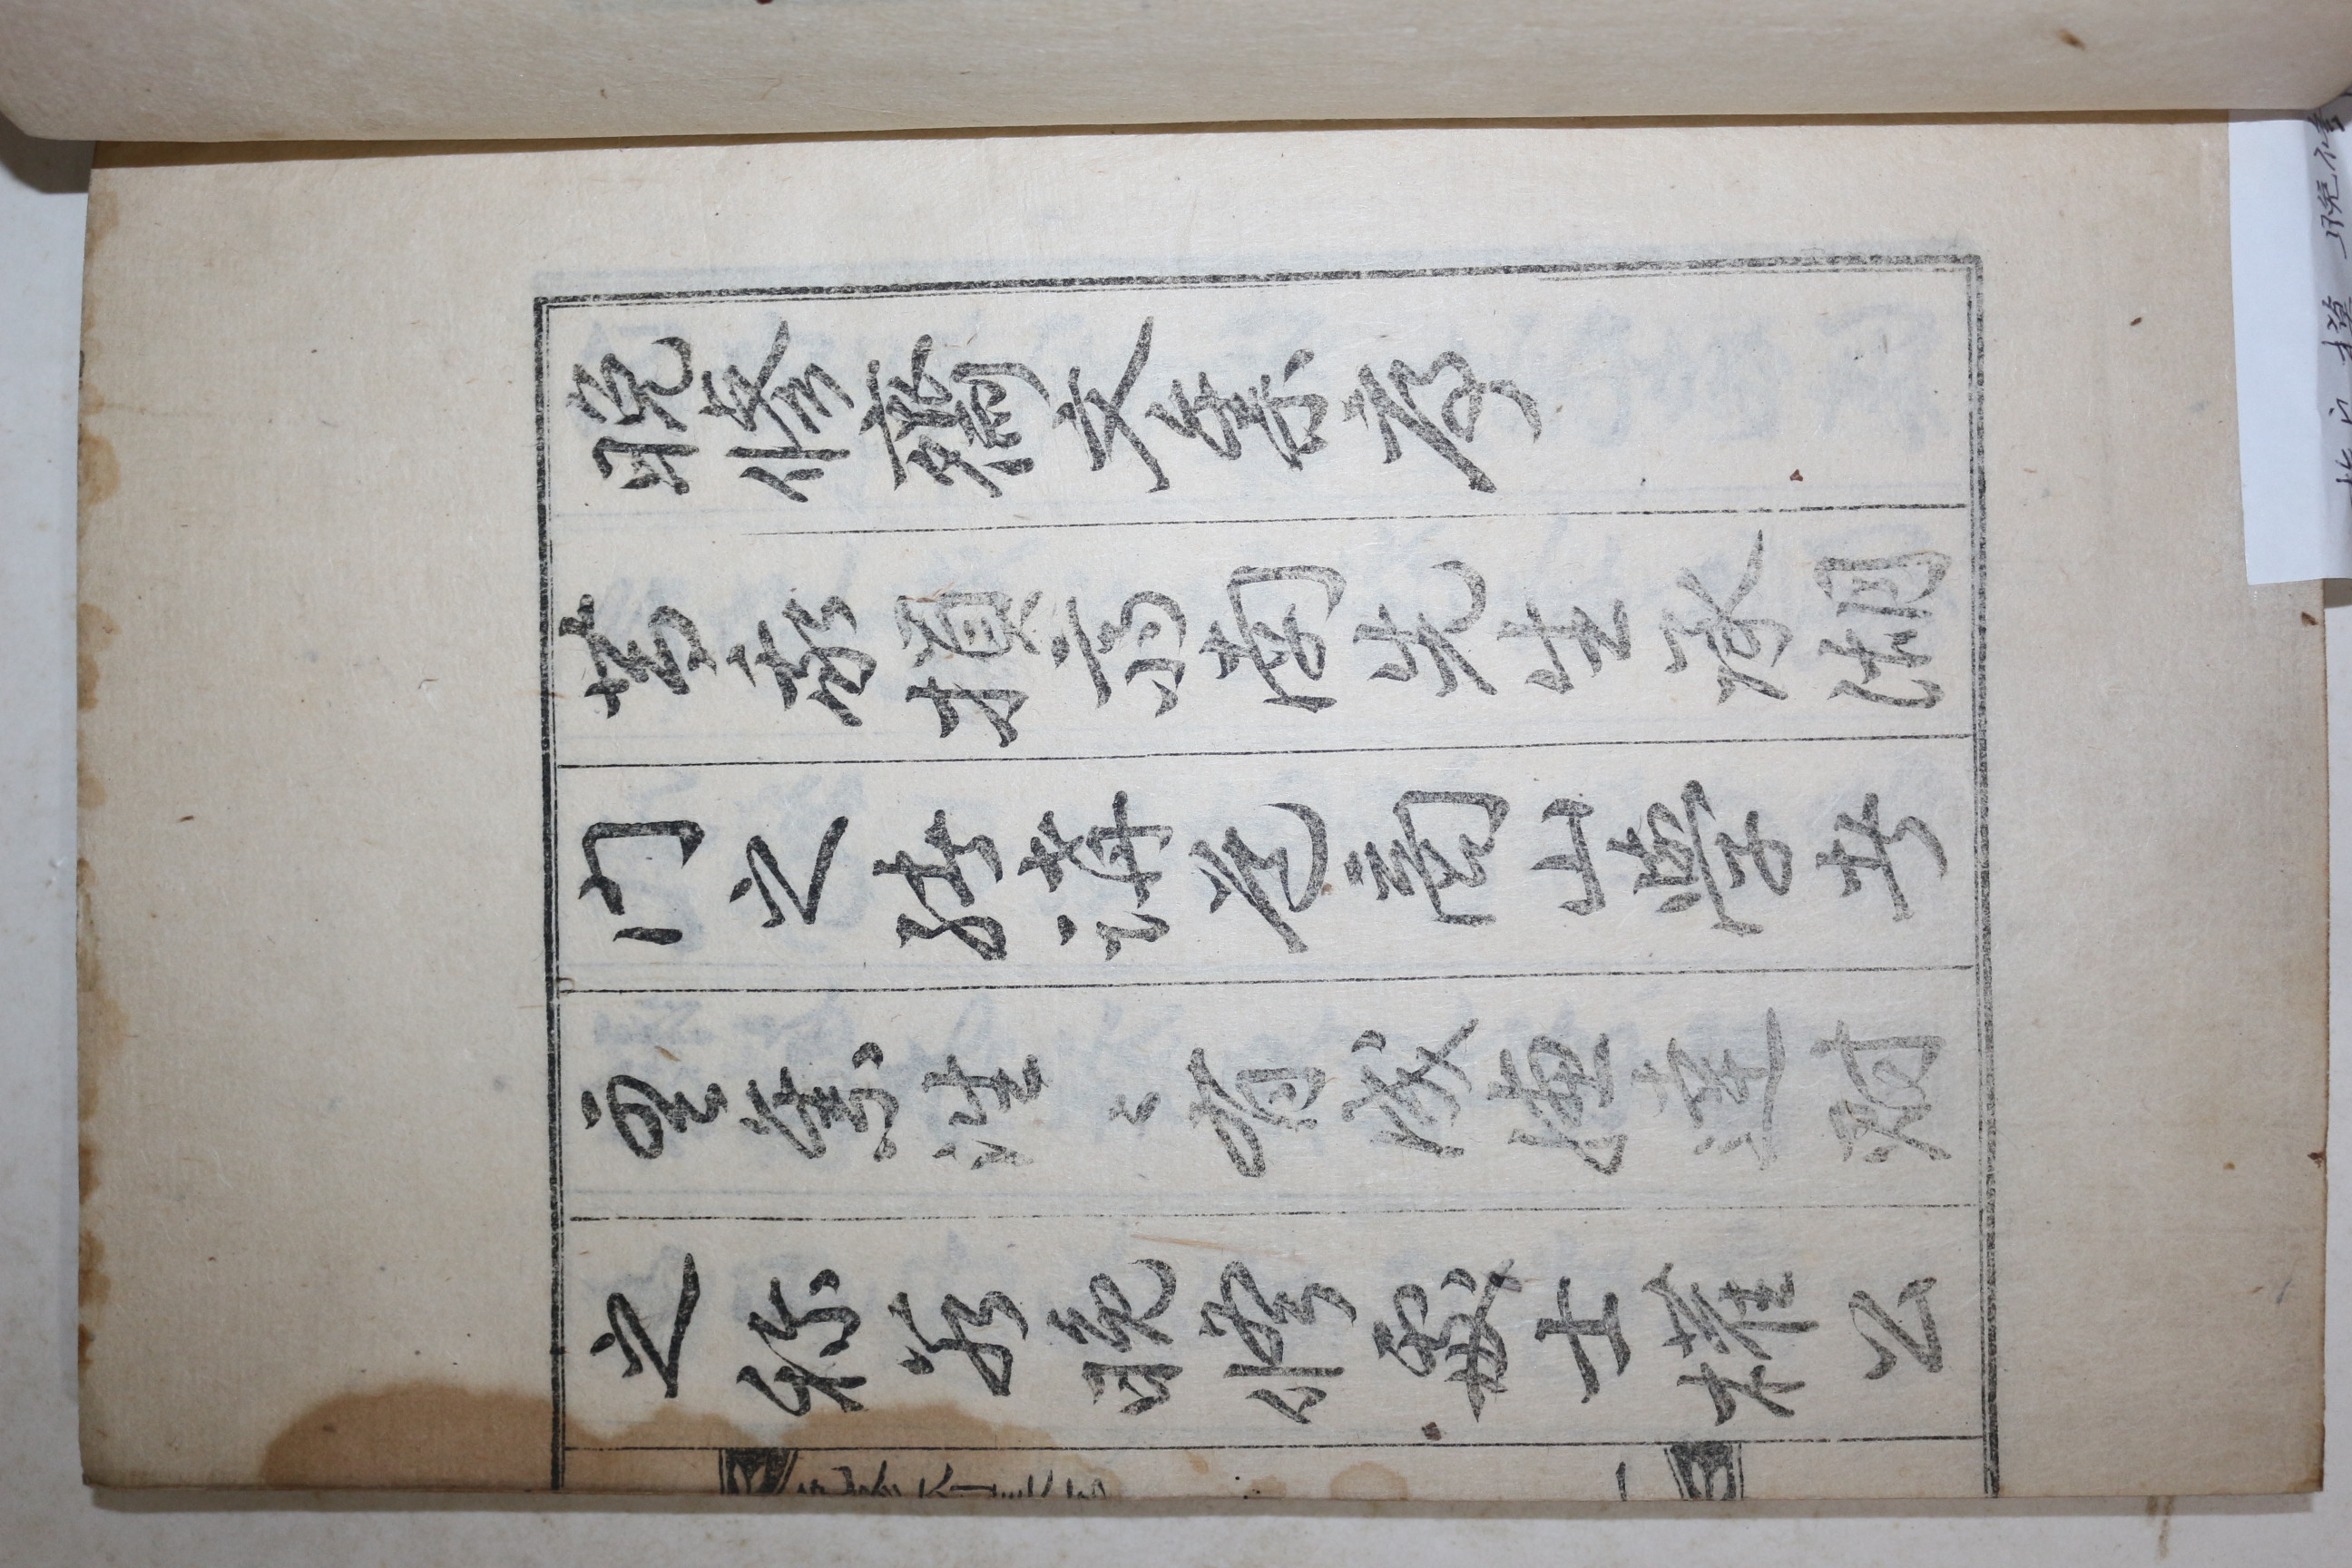 晩修齋文集序
昔我損齋南先生承湖
門之緖講道商山學者
坌集徃〻有成德達財
之称若晩修處士權公
一